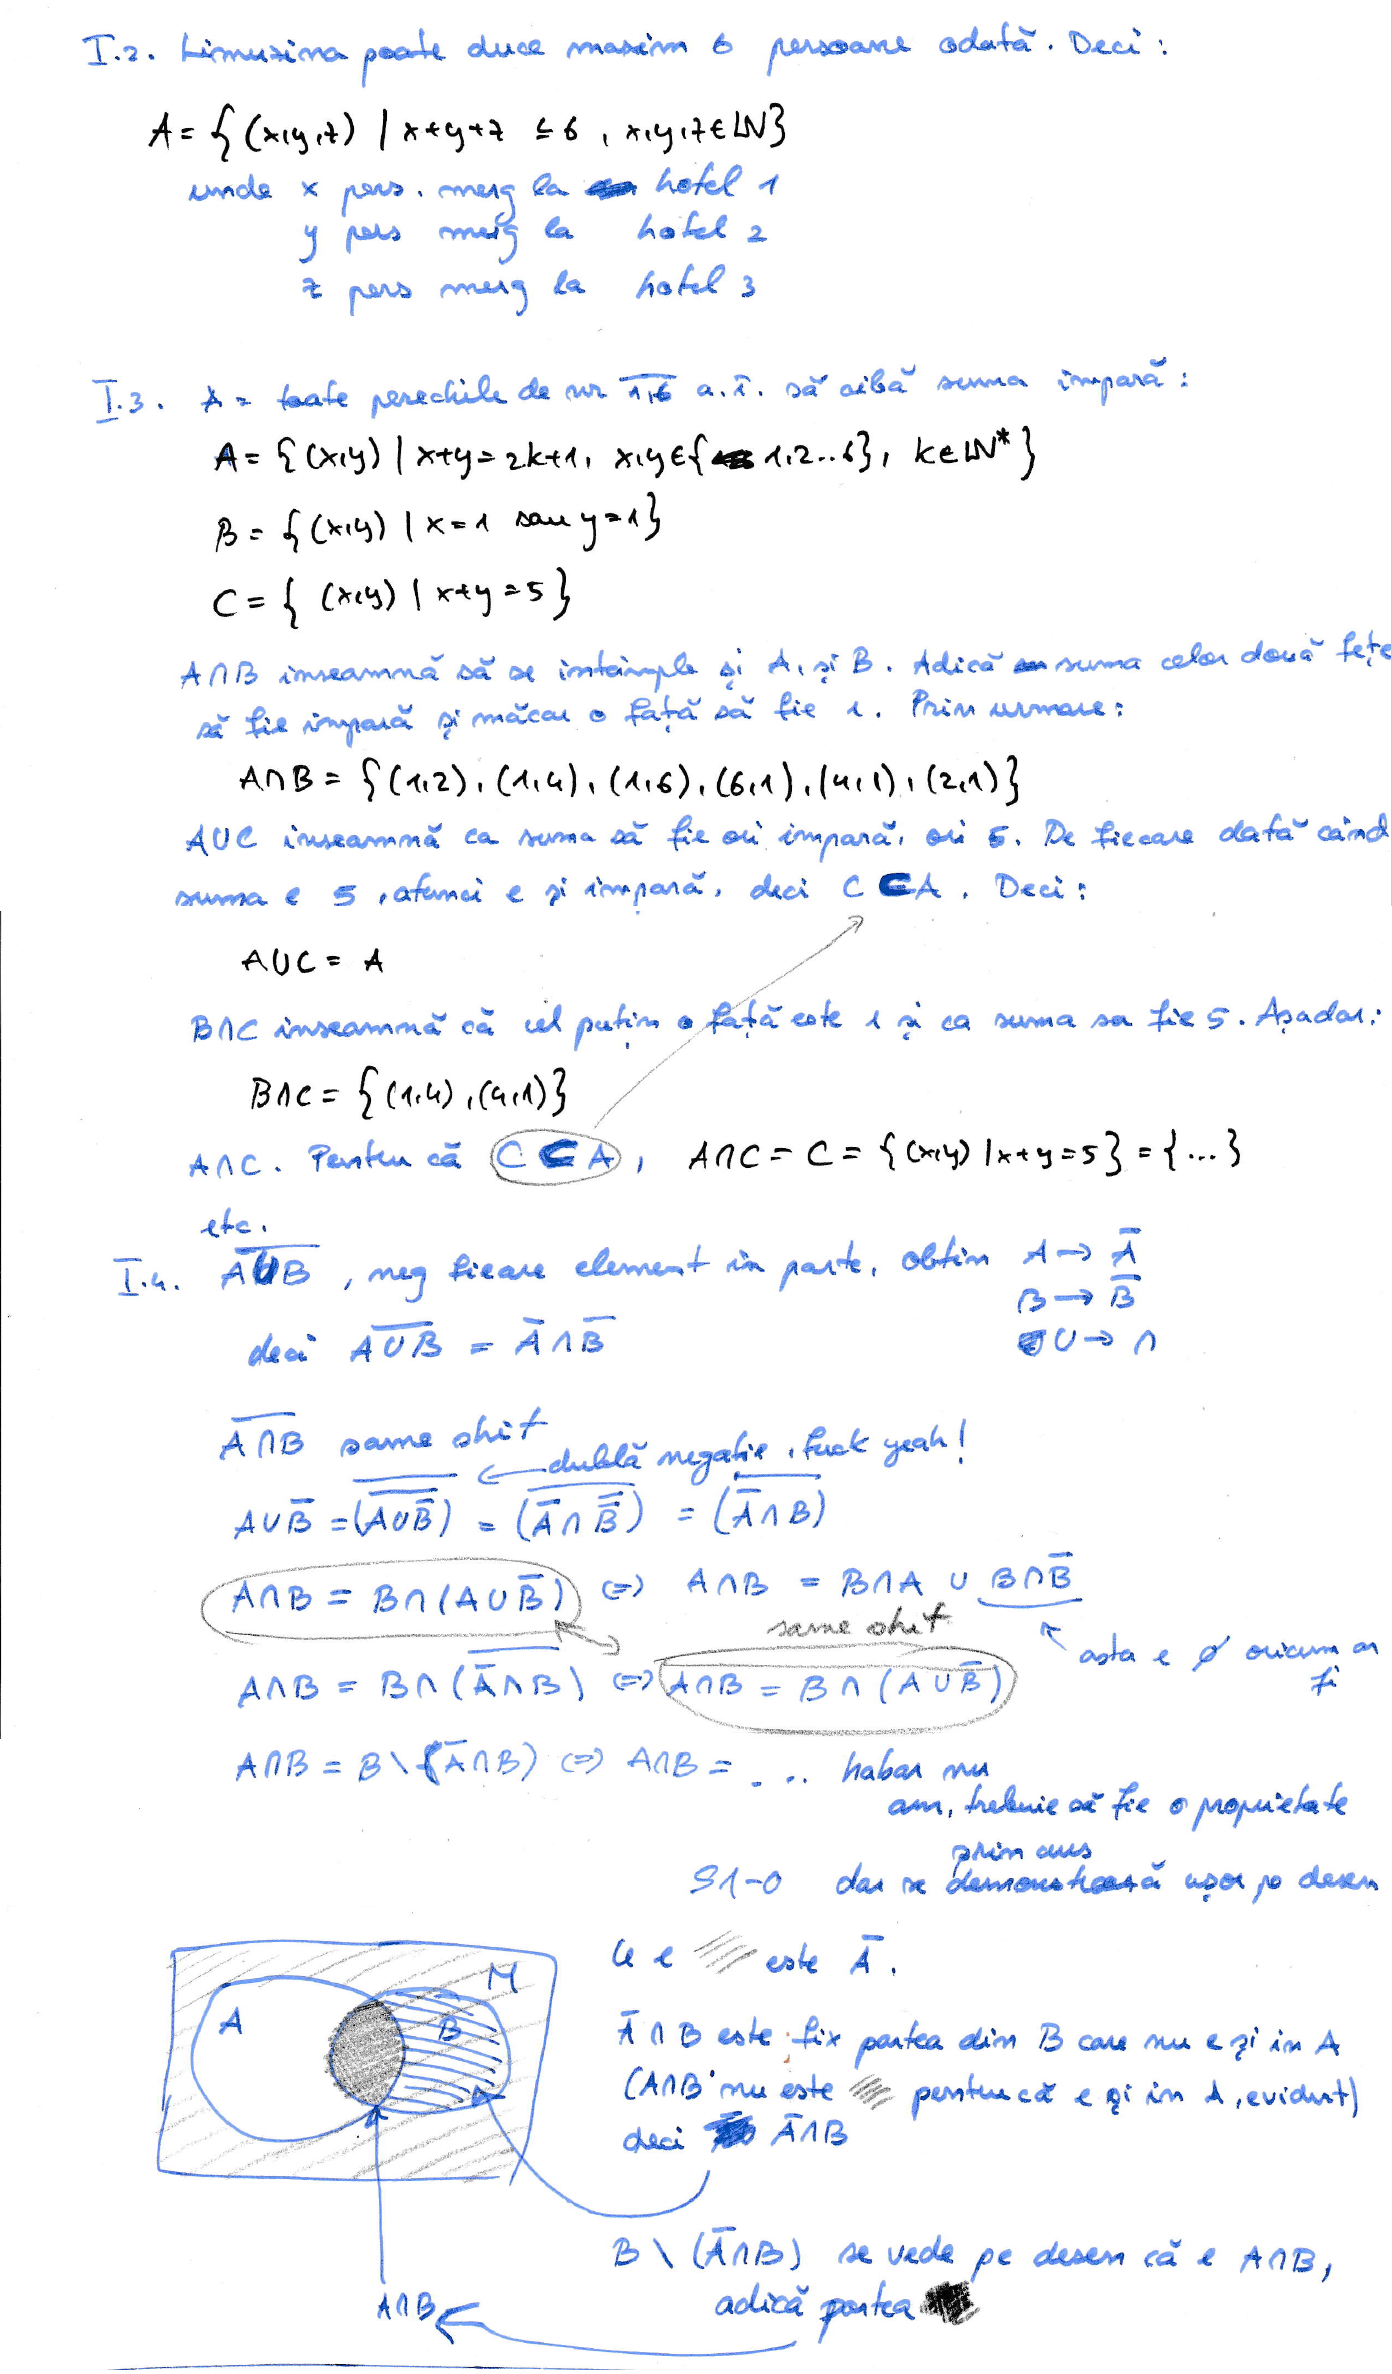 I.2. Limuzina poate duce maxim 6 persoane odată. Deci:
A = {(x,y,z) | x+y+z ≤ 6, x,y,z ∈ ℕ}
unde x pers. merg la hotel 1
y pers merg la hotel 2
z pers merg la hotel 3
I.3. A = toate perechile de nr 1,6 a.î. să aibă suma impară:
A = {(x,y) | x+y = 2k+1, x,y ∈ {1,2..6}, k ∈ ℕ*}
B = {(x,y) | x=1 sau y=1}
C = {(x,y) | x+y=5}
A∩B inseamnă să se intâmple și A, și B. Adică suma celor două fețe
să fie impară și măcar o față să fie 1. Prin urmare:
A∩B = {(1,2), (1,4), (1,6), (6,1), (4,1), (2,1)}
A∪C inseamnă ca suma să fie ori impară, ori 5. De fiecare dată când
suma e 5, atunci e și impară, deci C⊂A. Deci:
A∪C = A
B∩C inseamnă că cel puțin o față este 1 și ca suma sa fie 5. Așadar:
B∩C = {(1,4), (4,1)}
A∩C. Pentru că C⊂A, A∩C = C = {(x,y) | x+y=5} = {...}
etc.
I.4. A̅∪̅B̅, neg fiecare element in parte, obtin A → A̅
B → B̅
deci A̅∪̅B̅ = A̅∩B̅ ∪ → ∩
A̅∩̅B̅ same shit
dublă negatie, fuck yeah!
A∪B̅ = (A̿∪̿B̿̅) = (A̅̅∩̅B̿̅) = (A̅̅∩̅B̅)
A∩B = B∩(A∪B̅) ⇔ A∩B = B∩A ∪ B∩B̅
same shit
asta e ∅ oricum ar
fi
A∩B = B∩(A̅̅∩̅B̅) ⇔ A∩B = B∩(A∪B̅)
A∩B = B \ (A̅∩B) ⇔ A∩B = ... habar nu
am, trebuie să fie o proprietate
prin curs
S1-0 dar se demonstrează ușor p desen
Ce e este A̅.
A M
B
A̅∩B este fix partea din B care nu e și in A
(A∩B nu este pentru că e și in A, evident)
deci A̅∩B
B \ (A̅∩B) se vede pe desen că e A∩B,
adică partea
A∩B